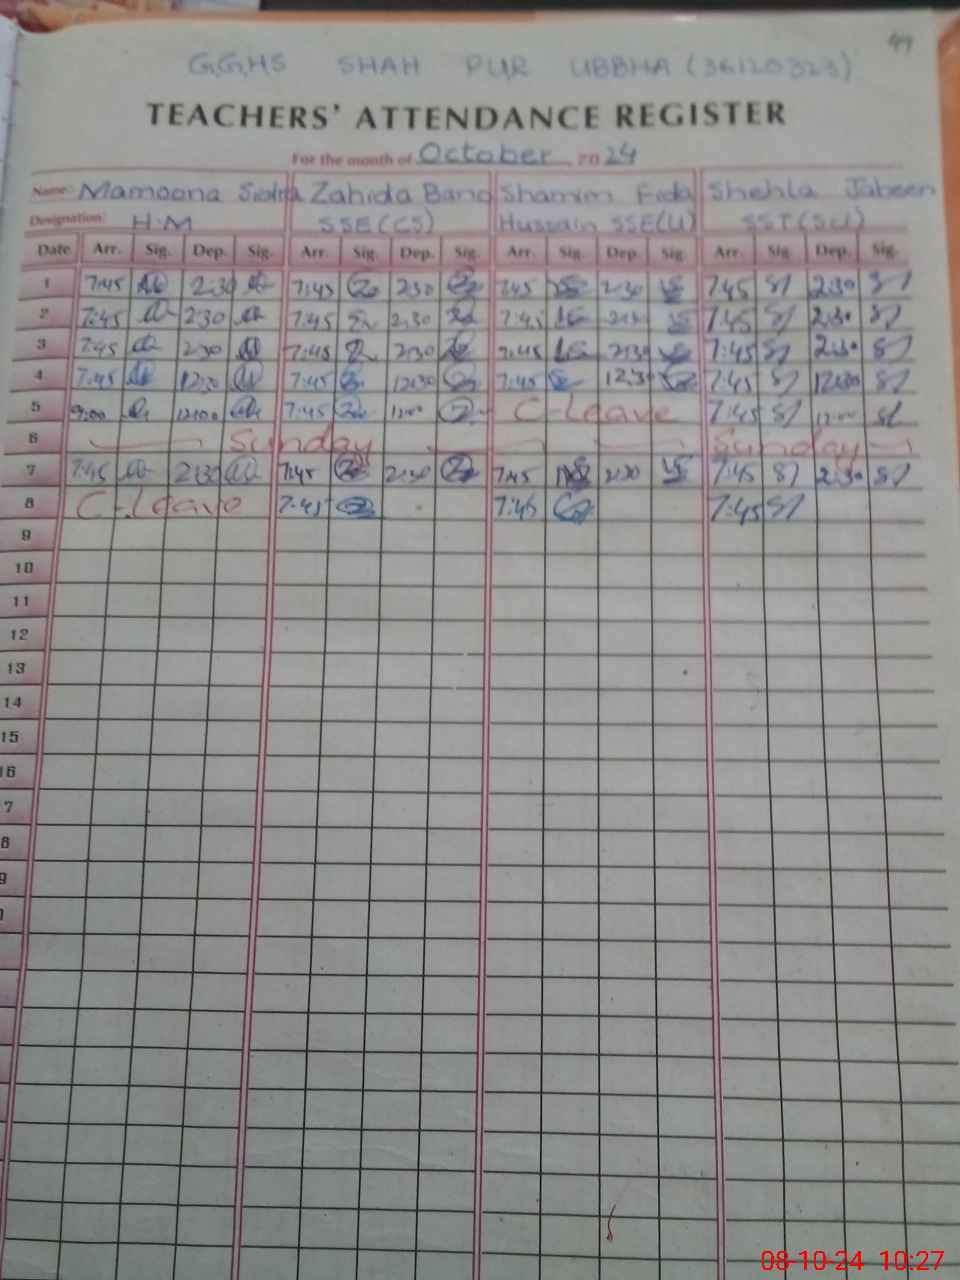 49
GGHS SHAH PUR UBBHA (36120323)
TEACHERS' ATTENDANCE REGISTER
For the month of October 2024
Name: Mamoona Zahida Bano Shamim Fida Shehla Jabeen
Designation: H.M SSE(CS) Hussain SSE(U) SST(SU)
Date Arr. Sig. Dep. Sig. Arr. Sig. Dep. Sig. Arr. Sig. Dep. Sig. Arr. Sig. Dep. Sig.
1 7:45 2:30 7:45 2:30 7:45 2:30 7:45 2:30
2 7:45 2:30 7:45 2:30 7:45 2:30 7:45 2:30
3 7:45 2:30 7:45 2:30 7:45 2:30 7:45 2:30
4 7:45 12:30 7:45 12:30 7:45 12:30 7:45 12:30
5 9:00 12:00 7:45 12:00 C-Leave 7:45 12:00
6 Sunday Sunday
7 7:45 2:30 7:45 2:30 7:45 2:30 7:45 2:30
8 C-Leave 7:45 7:45 7:45
9
10
11
12
13
14
15
16
7
8
9
08-10-24 10:27